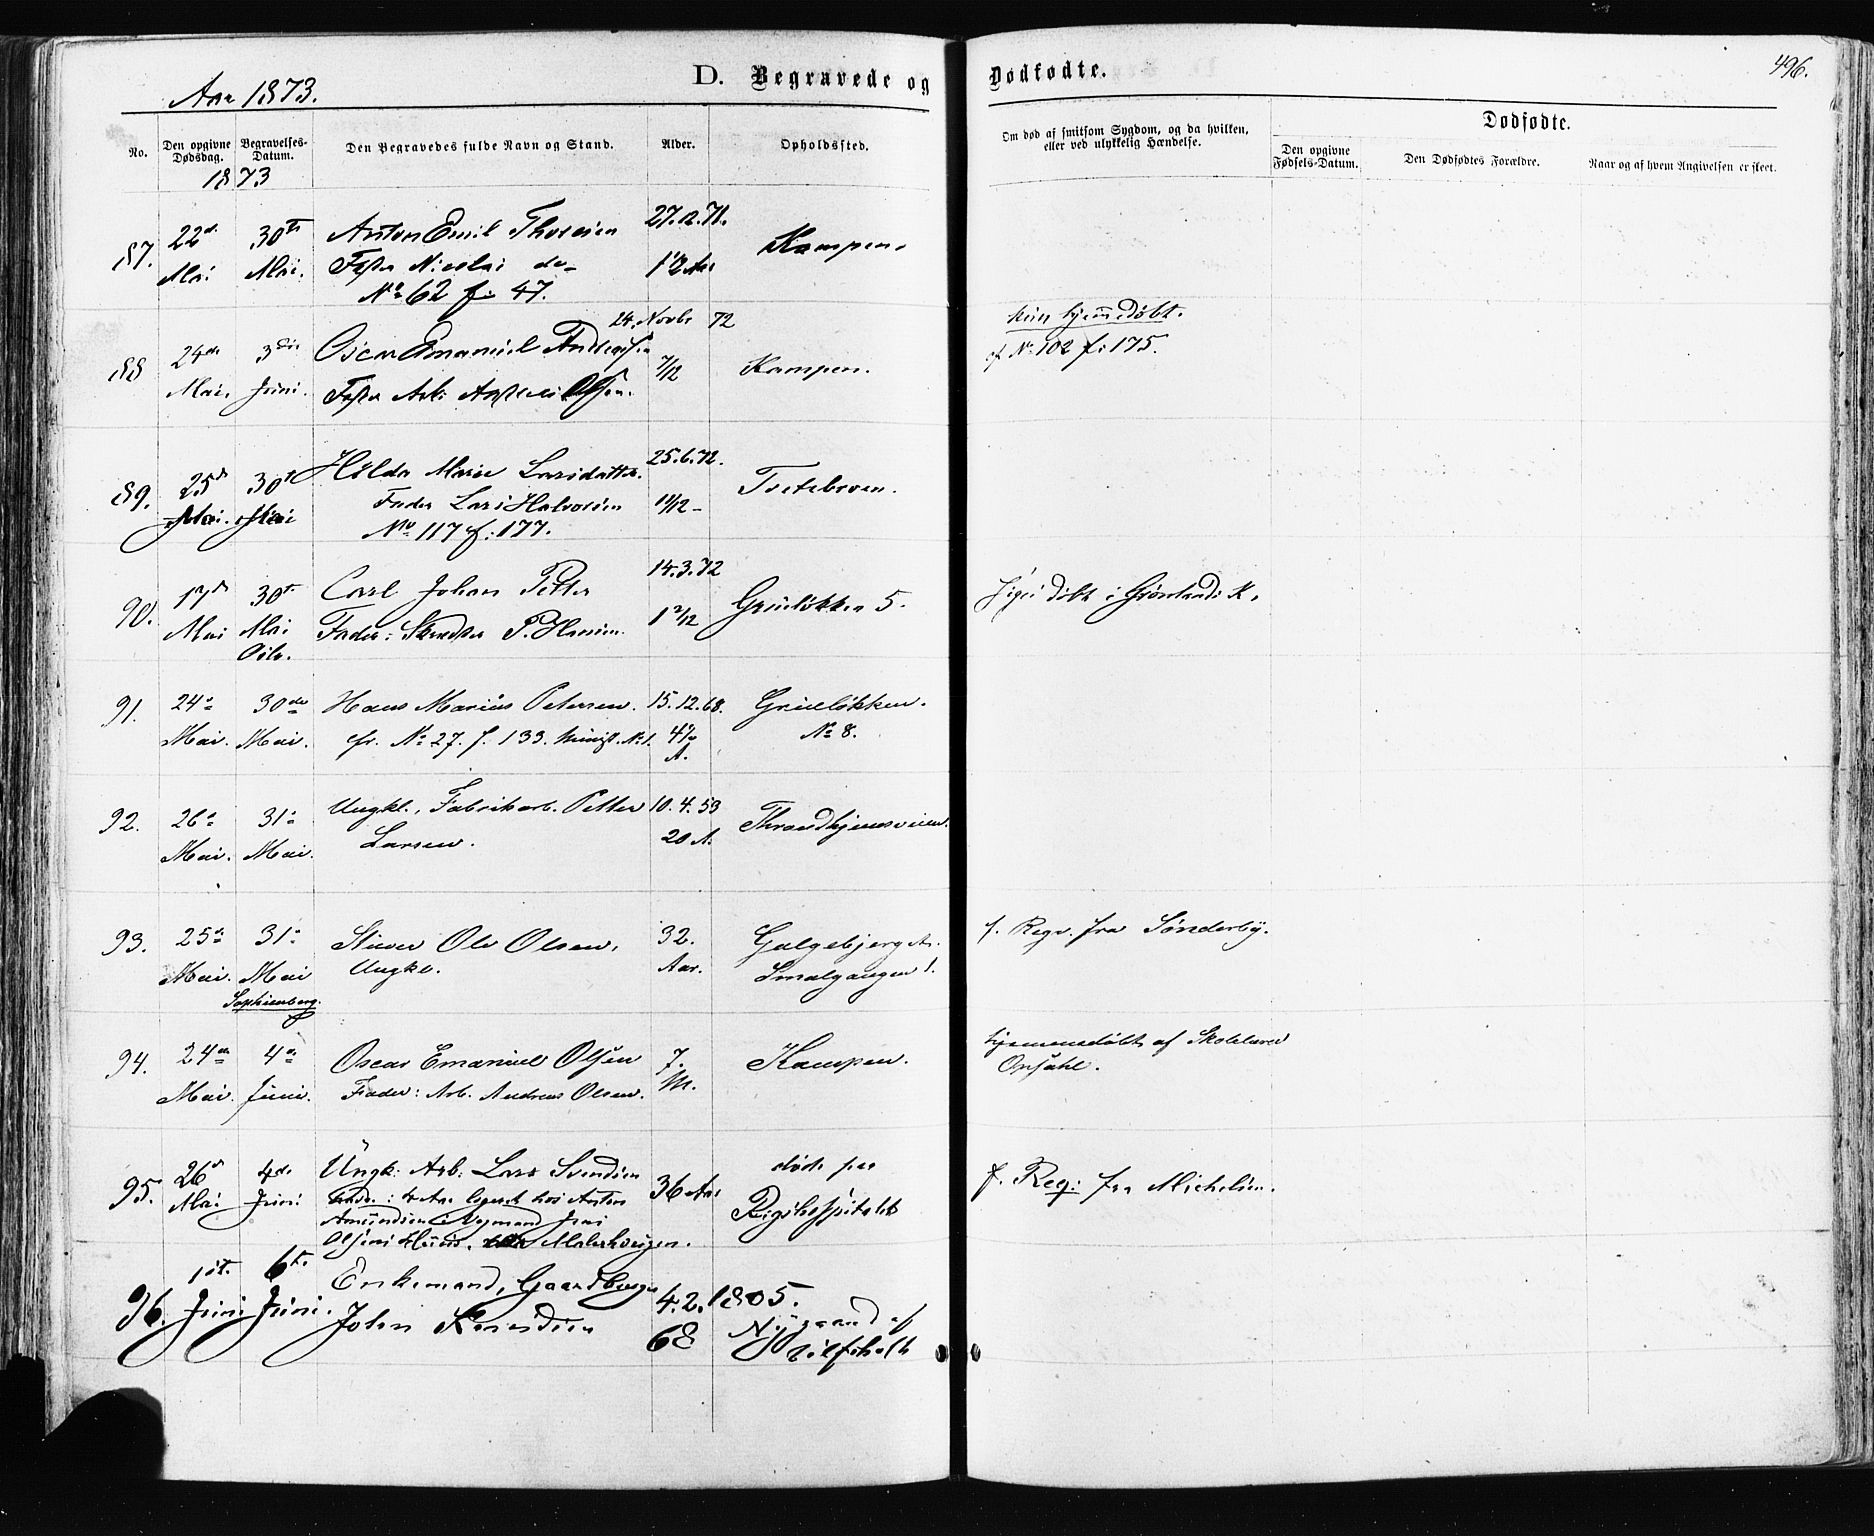 Aar 1873.
D. Begravede og Dødfødte.
496.
No.
Den opgivne Dødsdag.
Begravelses-Datum.
Den Begravedes fulde Navn og Stand.
Alder.
Opholdssted.
Om død af smitsom Sygdom, og da hvilken,
eller ved ulykkelig Hændelse.
Dødfødte.
Den opgivne Fødsels-Datum.
Den Dødfødtes Forældre.
Naar og af hvem Angivelsen er skeet.
1873
87. 22d Mai 30te Mai.
Anton Emil Thorsen
27.12.71.
Kampen.
Fader Nicolai do
No 62 f: 47.
88 24de Mai. 3die Juni.
24. Novbr 72
Oscar Emanuel Andreassen
7/12
Kampen.
Fader Arb. Olsen.
kun hjemmedøbt.
cf No. 102 f: 175.
89. 25d Mai. 30t Mai
Hilda Marie Larsdatter.
25.6.72.
Fader Lars Halvorsen
11/12
No 117 f: 177.
90. 17d Mai 30te Mai Oslo.
Carl Johan Petter
14.3.72
Fader: P. Hansen.
1 2/12
Grünløkken 5.
døbt i Grønlands K.
91. 24de Mai. 30de Mai.
Hans Marius Petersen.
15.12.68.
cfr. No 27. f. 133. Minist. No 1.
A.
Grünløkken.
No 8.
92. 26de Mai. 31de Mai.
Ungkl., Fabrikarb. Petter
Larsen.
10.4.53
20 A.
Throndhjemsveien.
93. 25de Mai. 31de Mai
Sophienberg.
Ole Olsen,
Ungkl.
32.
Aar.
Galgebjerget.
Smalgangen 1.
f. Regn. fra Sønderby.
94. 24de Mai. 4de Juni.
Oscar Emanuel Olsen
Fader: Arb. Andreas Olsen.
7.
M.
Kampen.
hjemmedøbt af Skolelærer
Opsahl.
95. 26d Mai 4de Juni
Ungk: Arb: Lars Svendsen
36 Aar
døde paa
Rigshospitalet
logeret hos Anton
Amundsen
Olsens Huus. Malerhaugen.
f. Reg: fra Michelsen.
96. 1ste Juni 6te Juni.
Enkemand, Gaardbruger
John
4.2.1805.
68